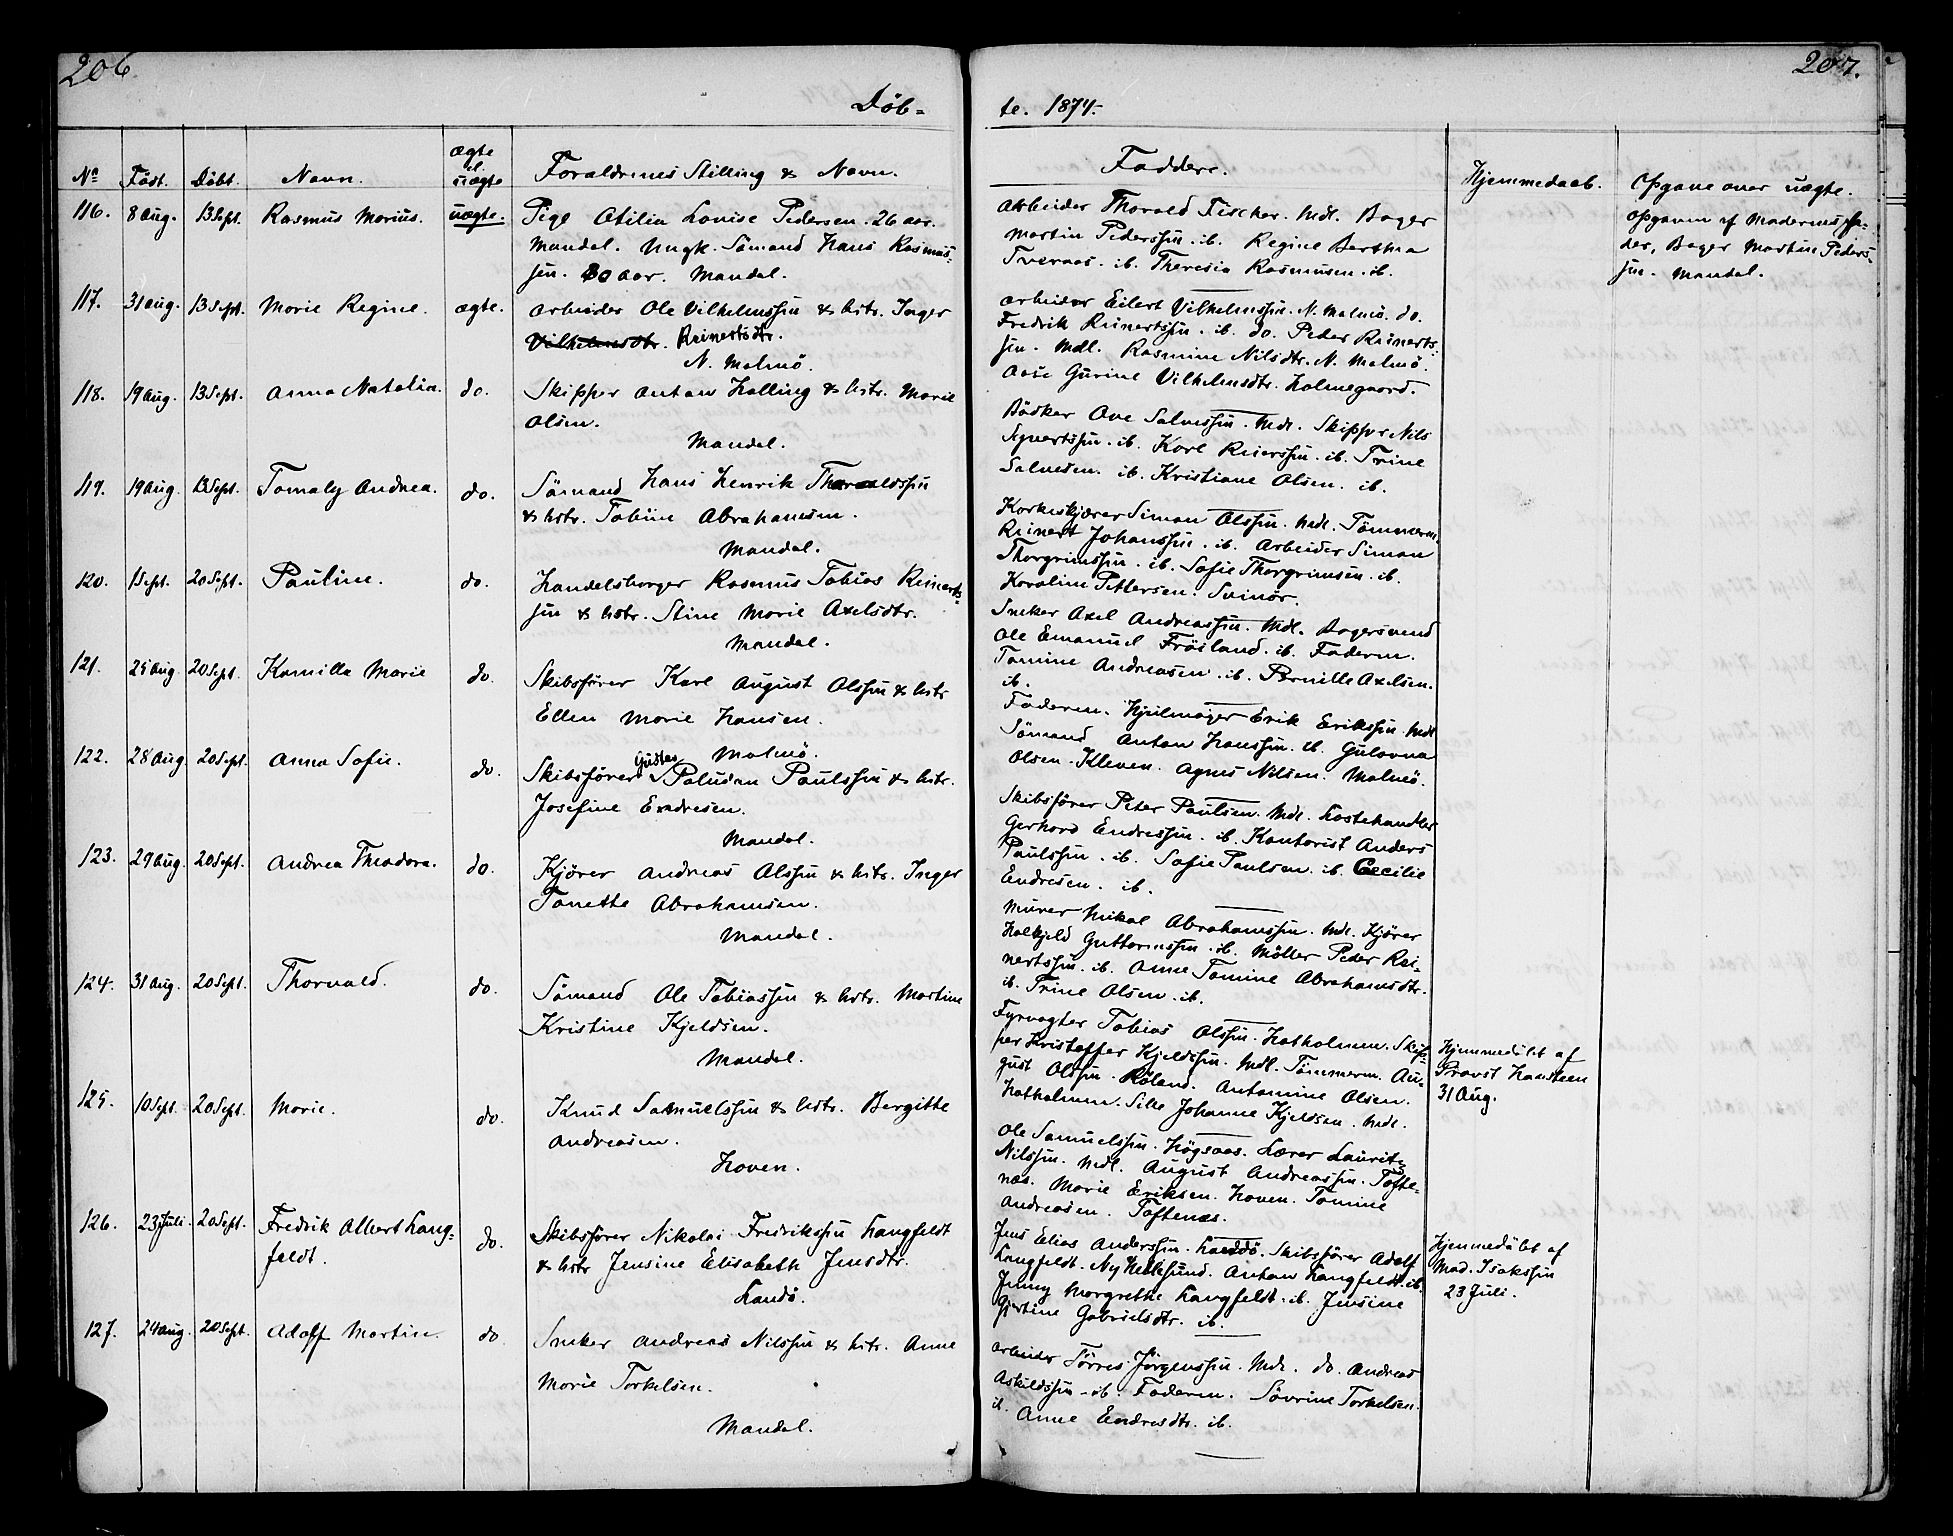 206
207.
Døb=
te. 1874.
No
Født.
Døbt.
Navn.
ægte el. uægte
Forældrenes Stilling & Navn.
Faddere.
Hjemmedaab.
Opgave over uægte.
116. 8 Aug. 13 Sept. Rasmus Marius. uægte. Pige Otilia Lovise Pedersen. 26 aar.
Mandal. Ungk. Sømand Hans Rasmus=
sen. 20 aar. Mandal.
Arbeider Thorvald Fischer. Mdl. Bager
Martin Pederssen. ib. Regine Berthea
Tveraas. ib. Theresia Rasmusen. ib.
Opgaven af Moderens Fa=
der, Bager Martin Peders=
sen. Mandal.
117. 31 Aug. 13 Sept. Marie Regine. ægte. Arbeider Ole Vilhelmssen & hstr. Inger
Vilhelmsdtr. Reinertsdtr.
N. Malmö.
Arbeider Eilert Vilhelmssen. N. Malmö. do.
Fredrik Reinertssen. ib. do. Peder Reinerts=
sen. Mdl. Rasmine Nilsdtr. N. Malmö.
Aase Gurine Vilhelmsdtr. Holmegaard.
118. 19 Aug. 13 Sept. Anna Natalia. do. Skipper Anton Halling & hstr. Marie
Olsen.
Mandal.
Bødker Ove Salvessen. Mdl. Skipper Nils
Sigvartssen. ib. Karl Reierssen. ib. Trine
Salvesen. ib. Kristiane Olsen. ib.
119. 19 Aug. 13 Sept. Tomaly Andrea. do. Sømand Hans Henrik Tharaldssen
& hstr. Tobine Abrahamsen.
Mandal.
Korkeskjærer Simon Olssen. Mdl. Tømmerm.
Reinert Johanssen. ib. Arbeider Simon
Thorgrimssen. ib. Sofie Thorgrimsen. ib.
Karoline Pettersen. Svinør.
120. 1 Sept. 20 Sept. Pauline. do. Handelsborger Rasmus Tobias Reinerts=
sen & hstr. Stine Marie Axelsdtr.
Mandal.
Sneker Axel Andreassen. Mdl. Bagersvend
Ole Emanuel Frøiland. ib. Faderen.
Tomine Andreasen. ib. Pernille Axelsen.
ib.
121. 25 Aug. 20 Sept. Kamilla Marie do. Skibsfører Karl August Olssen & hstr
Ellen Marie Hansen.
Malmö.
Faderen. Hjulmager Erik Erikssen. Mdl
Sømand Anton Hanssen. ib. Gulovna
Olsen. Kleven. Agnes Nilsen. Malmö.
122. 28 Aug 20 Sept. Anna Sofie. do. Skibsfører Gustav Paludan Paulssen & hstr.
Josefine Endresen.
Mandal.
Skibsfører Peter Paulsen. Mdl. Kostehandler
Gerhard Endressen. ib. Kontorist Anders
Paulssen. ib. Sofie Paulsen. ib. Cecilie
Endresen. ib.
123. 29 Aug. 20 Sept. Andrea Theodora. do. Kjører Andreas Olssen & hstr. Inger
Tonette Abrahamsen.
Mandal.
Murer Mikal Abrahamssen. Mdl. Kjører
Halkjeld Guttormssen. ib. Møller Peder Rei=
nertssen. ib. Anne Tomine Abrahamsdtr.
ib. Trine Olsen. ib.
124. 31 Aug. 20 Sept. Thorvald. do. Sømand Ole Tobiassen & hstr. Martine
Kristine Kjeldsen.
Mandal.
Fyrvogter Tobias Olssen. Hatholmen. Skip=
per Kristoffer Kjeldssen. Mdl. Tømmerm. Au=
gust Olssen. Røland. Antomine Olsen.
Hatholmen. Silke Johanne Kjeldsen. Mdl.
Hjemmedøbt af
Provst Hansteen
31 Aug.
125. 10 Sept. 20 Sept. Marie. do. Knud Samuelssen & hstr. Bergitte
Andreasen.
Hoven.
Ole Samuelssen. Høgsaas. Lærer Laurits
Nilssen. Mdl. August Andreassen. Tofte=
næs. Marie Eriksen. Hoven. Tomine
Andreasen. Toftenæs.
126. 23 Juli. 20 Sept. Fredrik Albert Lang=
feldt.
do. Skibsfører Nikolai Fredrikssen Langfeldt
& hstr Jensine Elisabeth Jensdtr.
Landö.
Jens Elias Anderssen. Landö. Skibsfører Adolf
Langfeldt. Ny Hellesund. Anton Langfeldt. ib.
Jenny Margrethe Langfeldt. ib. Jensine
Gjertine Gabrielsdtr. ib.
Hjemmedøbt af
Mad. Isakssen
23 Juli.
127. 24 Aug. 20 Sept. Adolf Martin. do. Sneker Andreas Nilssen & hstr. Anne
Marie Torkelsen.
Mandal.
Arbeider Tørres Jørgenssen. Mdl. do. Andreas
Askildssen. ib. Faderen. Søvrine Torkelsen.
ib. Anne Endresdtr. ib.